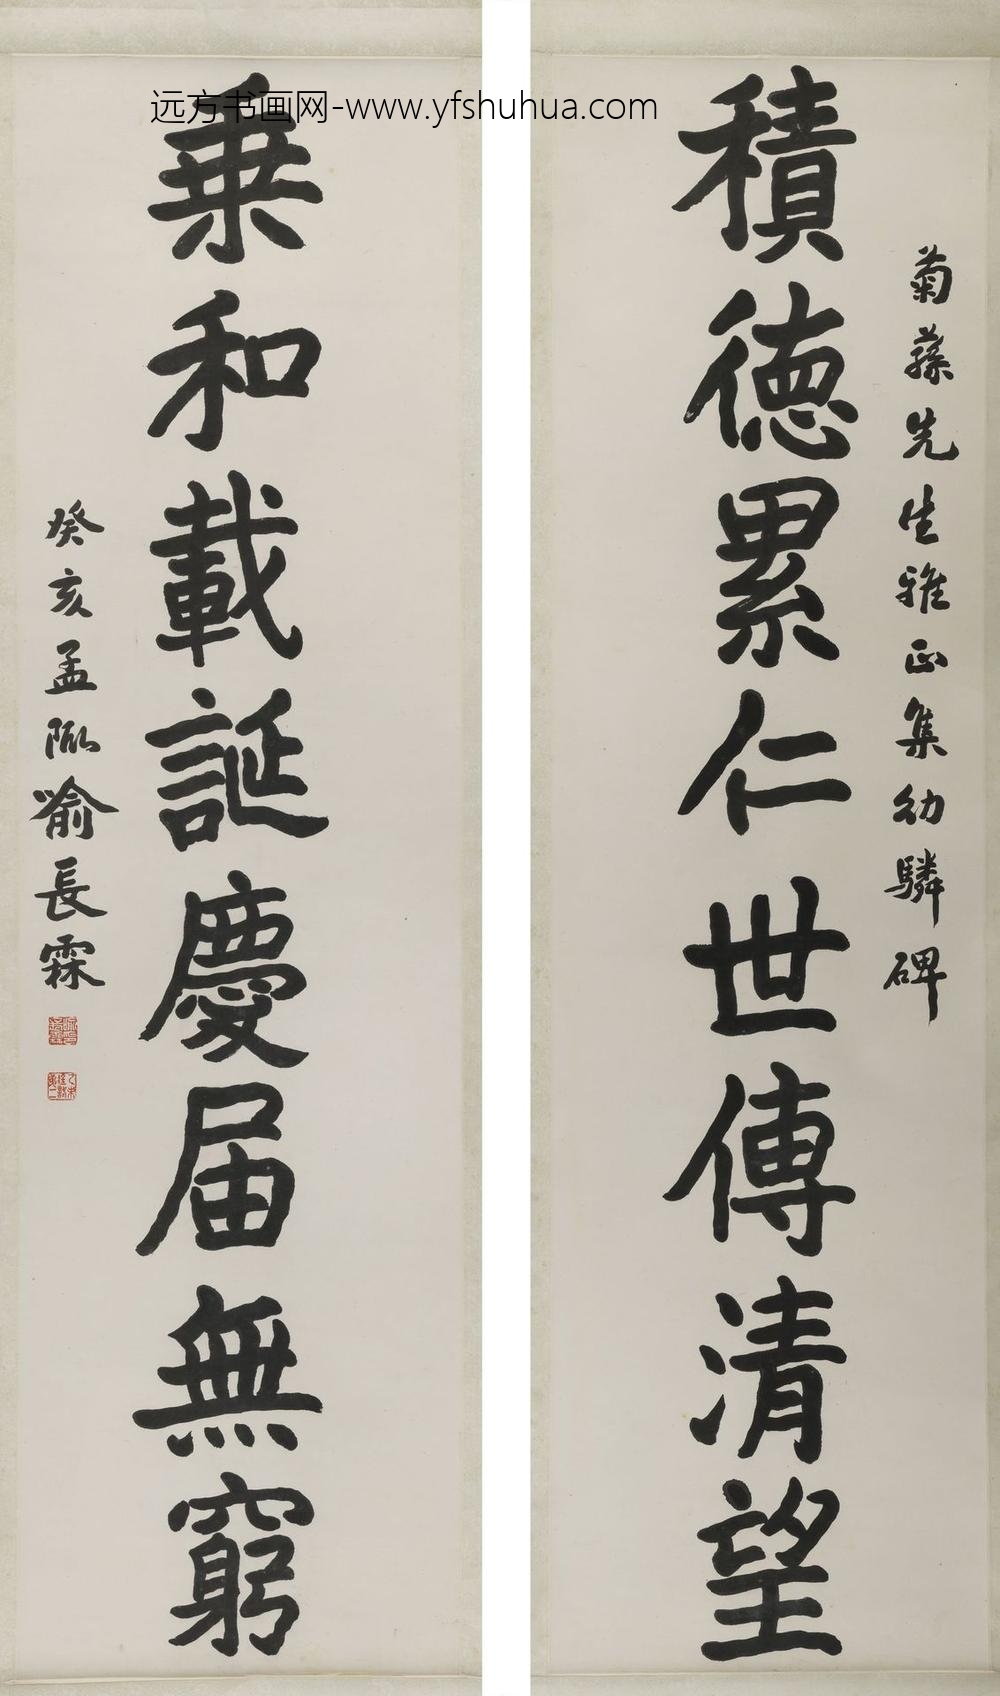 远方书画网-www.yfshuhua.com
菊蓀先生雅正集幼驎碑
積德累仁世傳清望
乗和載誕慶届無窮
癸亥孟陬喻長霖